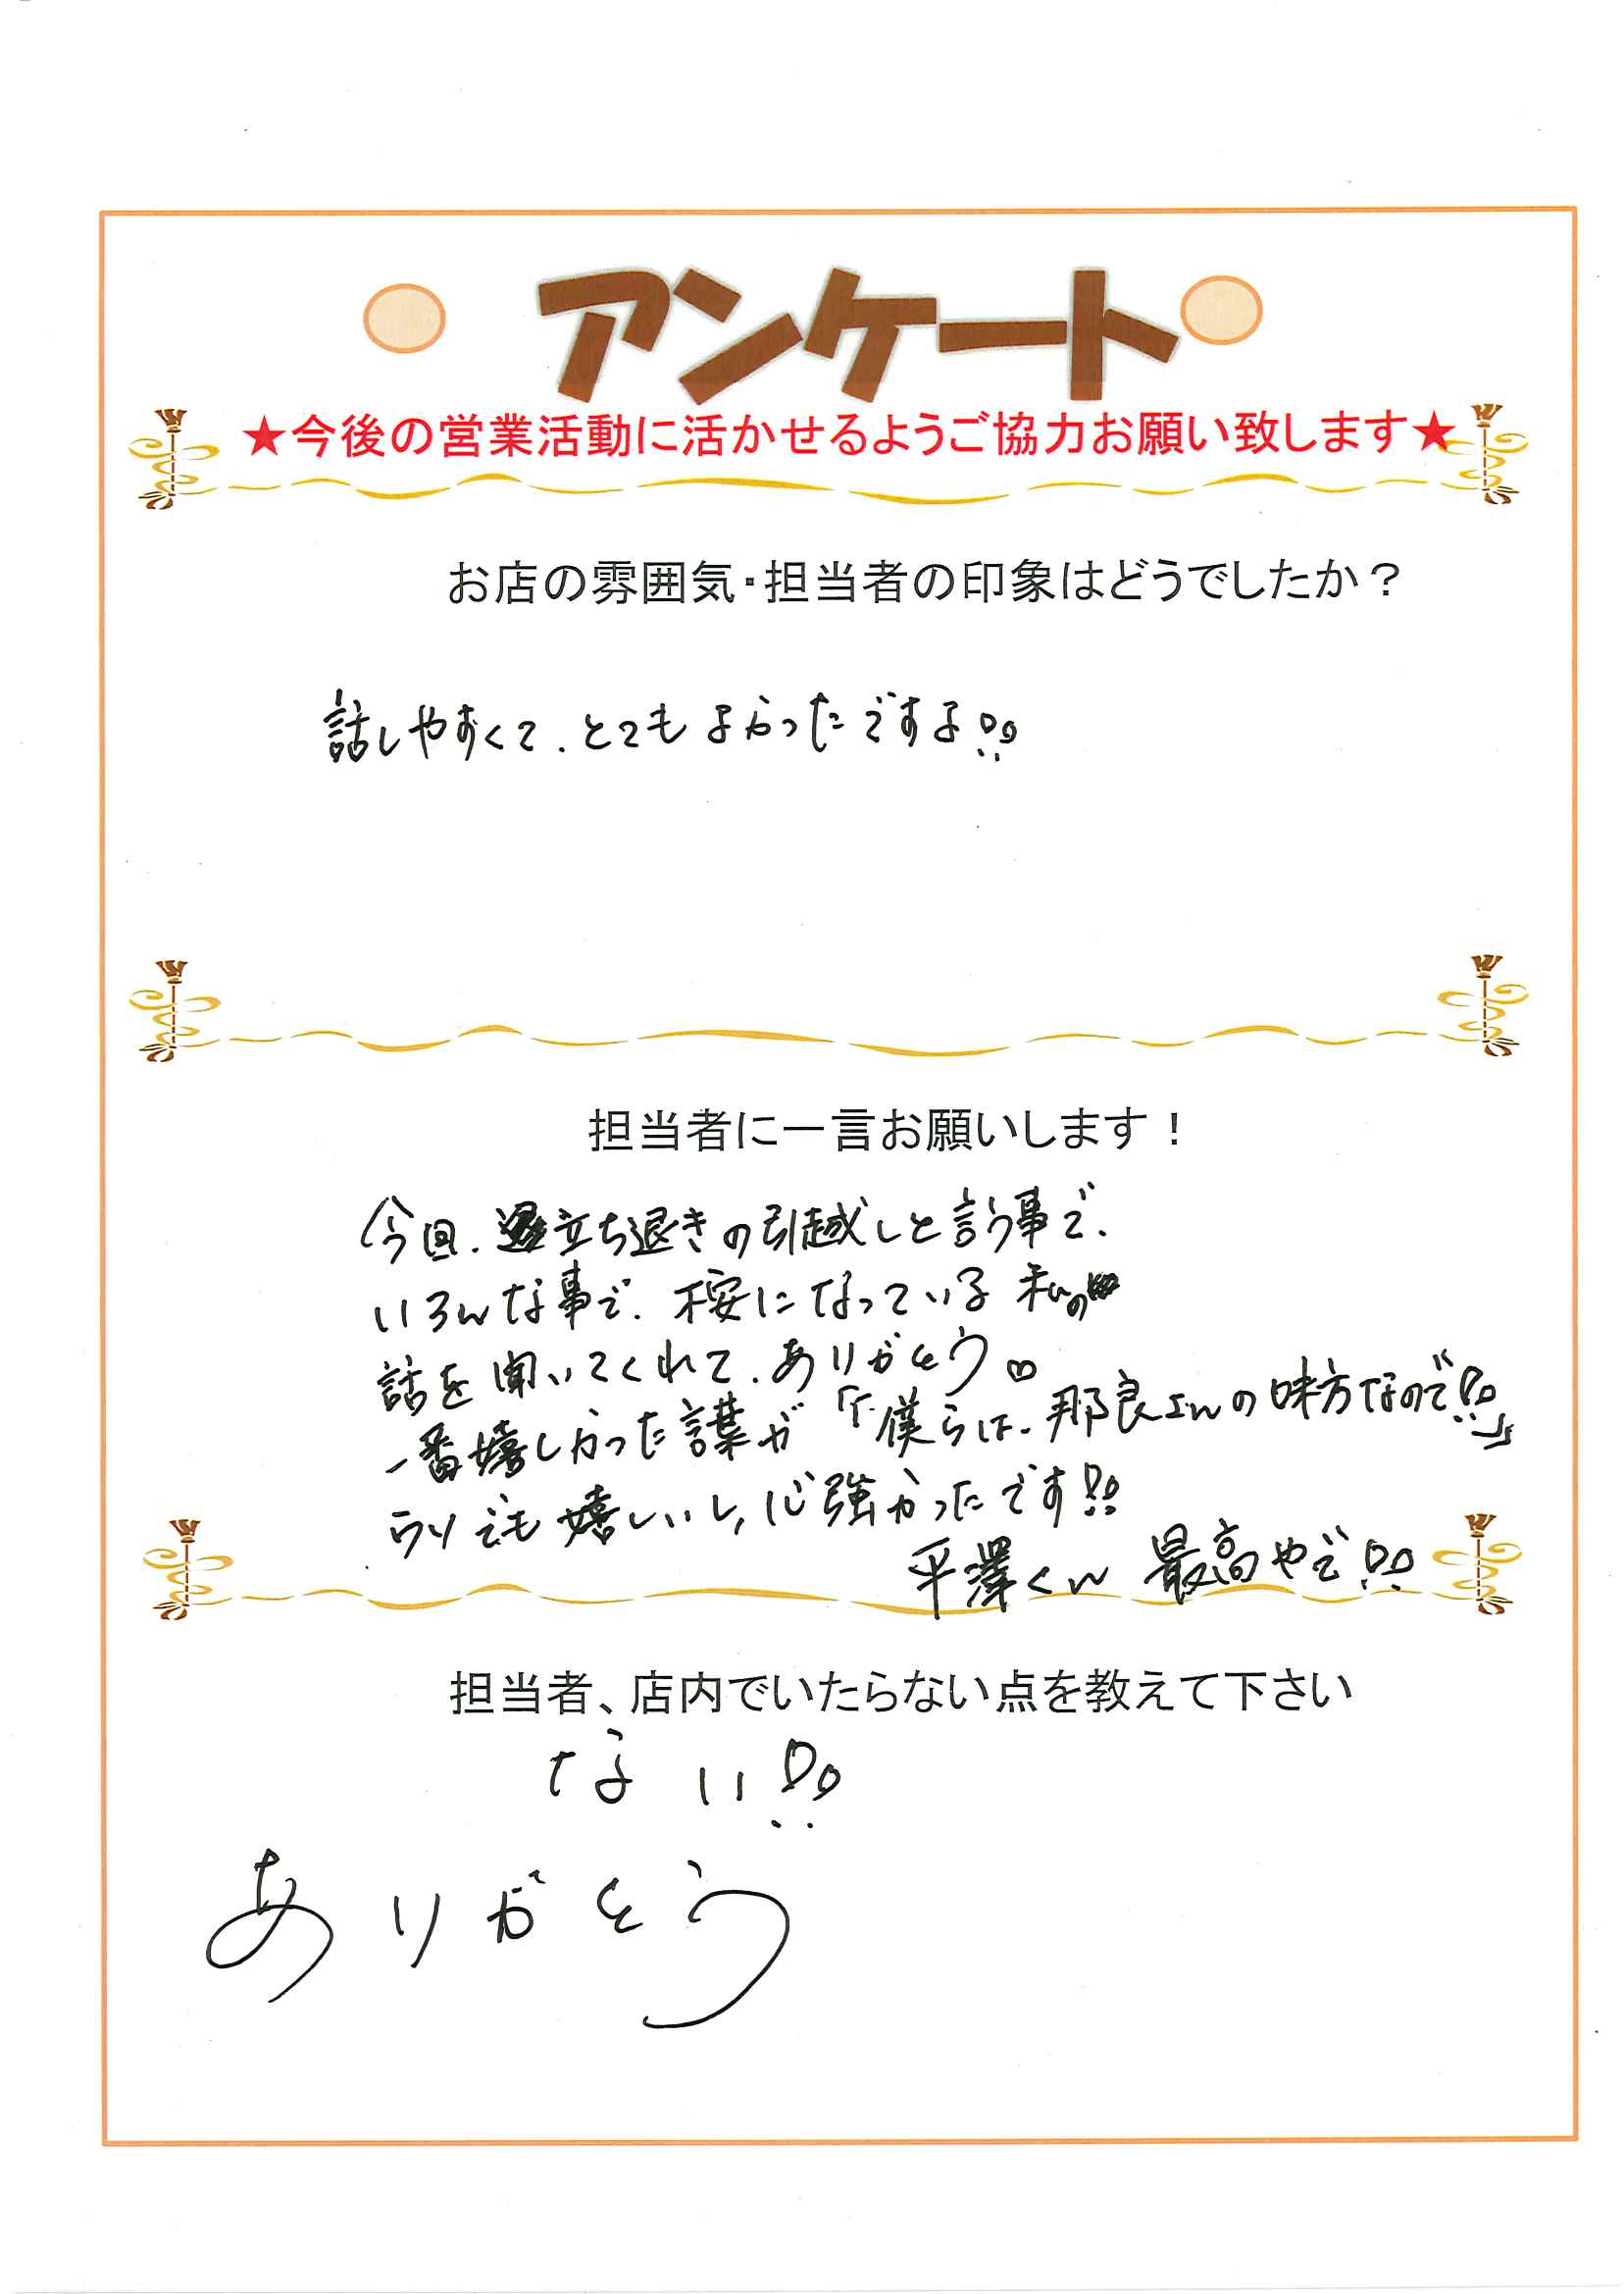 アンケート
★今後の営業活動に活かせるようご協力お願い致します★
お店の雰囲気・担当者の印象はどうでしたか？
話しやすくて、とてもよかったですよ!!
担当者に一言お願いします！
今回、立ち退きの引越しと言う事で、
いろんな事で、不安になっている 私の
話を聞いてくれて、ありがとう♡
一番嬉しかった言葉が「僕らは、那良さんの味方なので!!」
ウソでも嬉しいし、心強かったです!!
平澤くん 最高やで!!
担当者、店内でいたらない点を教えて下さい
ない!!
ありがとう